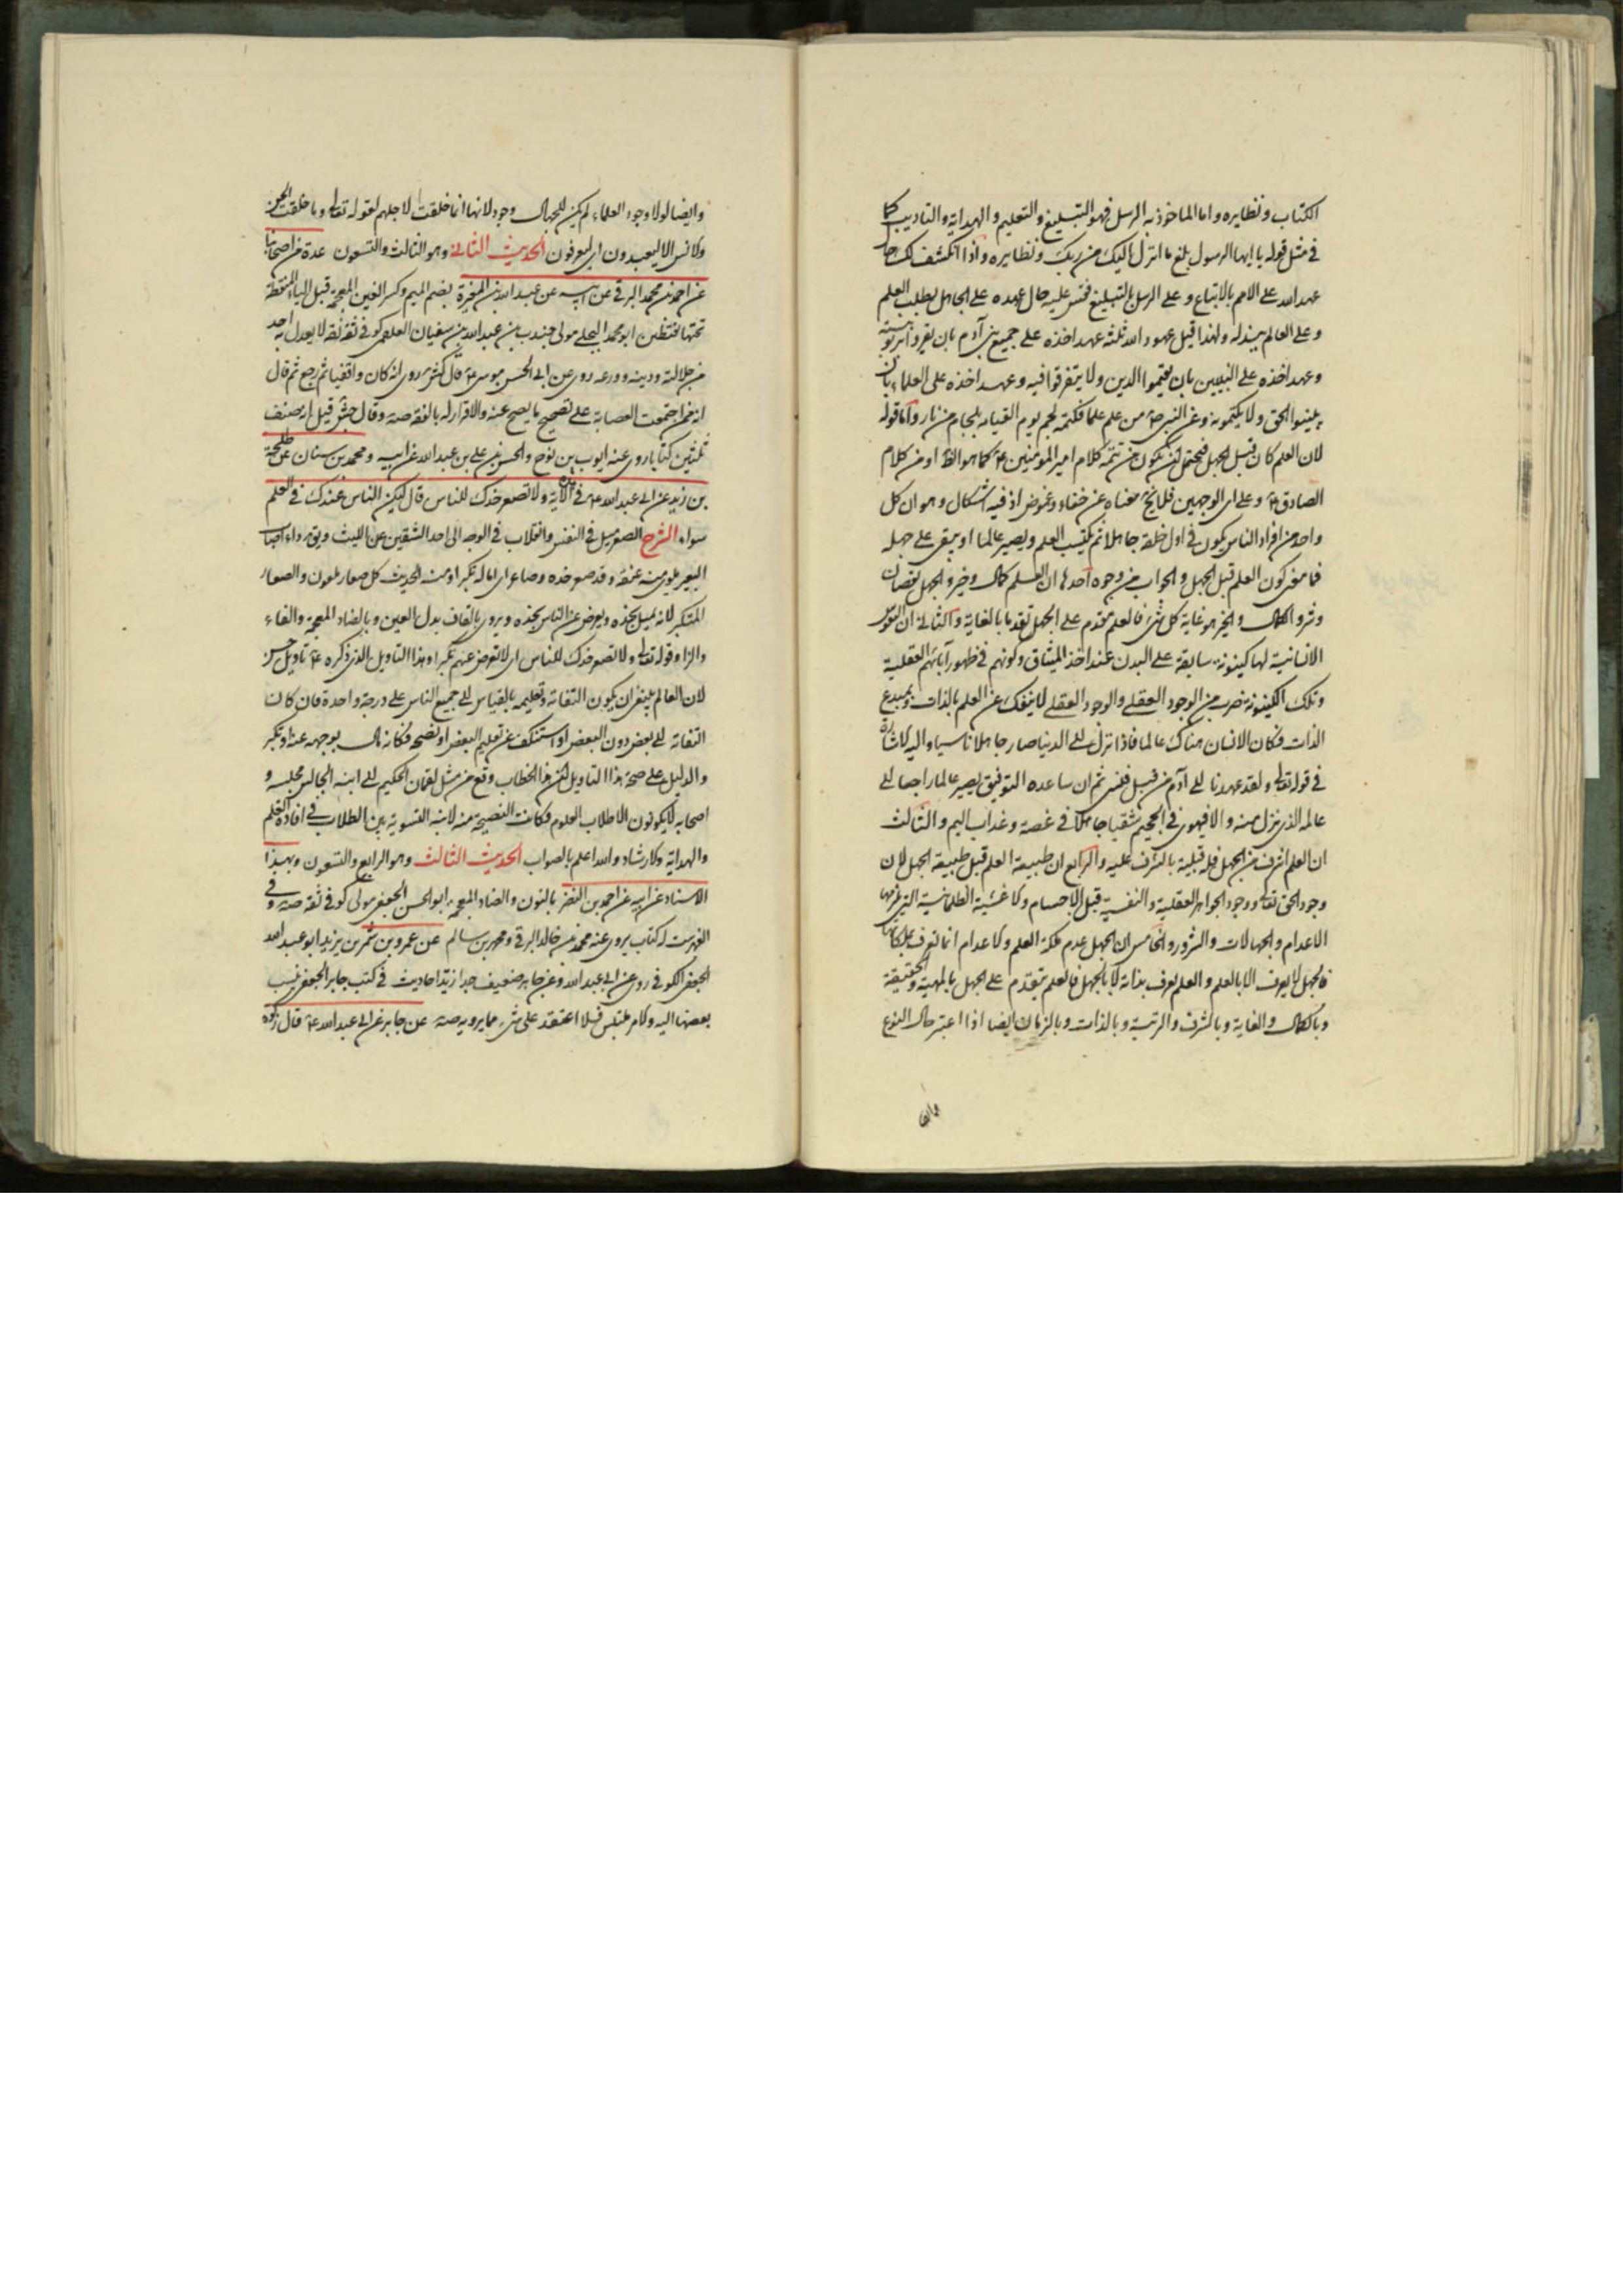 الكتاب ونظايره واما الماخوذ به الرسل فهو التبليغ والتعليم والهداية والتاديب كما
في مثل قوله يا ايها الرسول بلغ ما انزل اليك من ربك ونظايره واذا انكشف لك حال
عهد الله على الامم بالاتباع وعلى الرسل بالتبليغ فقس عليه حال عهده على الجاهل بطلب العلم
وعلى العالم ببذله ولهذا قيل عهود الله ثلثة عهد اخذه على جميع بني آدم بان يقروا بربوبيته
وعهد اخذه على النبيين بان يقيموا الدين ولا يتفرقوا فيه وعهد اخذه على العلماء بان
يبينوا الحق ولا يكتموه وعن النبي ص من علم علما فكتمه لجم يوم القيامه بلجام من نار واما قوله
لان العلم كان قبل الجهل فيحتمل ان يكون من تتمة كلام امير المؤمنين ع كما هو الظ او من كلام
الصادق ع وعلى اي الوجهين فلا يخ معناه عن خفاء وغموض اذ فيه اشكال وهو ان كل
واحد من افراد الناس يكون في اول خلقه جاهلا ثم يكتسب العلم ويصير عالما او يبقى على جهله
فما معنى كون العلم قبل الجهل والجواب من وجوه احدها ان العلم كمال وخير والجهل نقصان
وشر والكمال والخير هو غاية كل شئ فالعلم مقدم على الجهل تقدما بالغاية والثاني ان النفوس
الانسانية لها كينونة سابقة على البدن عند اخذ الميثاق وكونهم في ظهور آبائهم العقلية
وتلك الكينونة ضرب من الوجود العقلي والوجود العقلي لا ينفك عن العلم بالذات وبمبدع
الذات فكان الانسان هناك عالما فاذا نزل الى الدنيا صار جاهلا ناسيا واليه الاشارة
في قوله تعالى ولقد عهدنا الى آدم من قبل فنسي ثم ان ساعده التوفيق يصير عالما راجعا الى
عالمه الذي نزل منه والا فيهوي في الجحيم شقيا جاهلا في غصة وعذاب اليم والثالث
ان العلم اشرف من الجهل فله قبلية بالشرف عليه والرابع ان طبيعة العلم قبل طبيعة الجهل لان
وجود الحق تعالى ووجود الجواهر العقلية والنفسية قبل الاجسام والاغشية الظلمانية التي يلزمها
الاعدام والجهالات والشرور والخامس ان الجهل عدم ملكة العلم والاعدام انما تعرف بملكاتها
فالجهل لا يعرف الا بالعلم والعلم يعرف بذاته لا بالجهل فالعلم يتقدم على الجهل بالمهية والحقيقة
وبالكمال والغاية وبالشرف والرتبة وبالذات وبالزمان ايضا اذا اعتبر حال النوع
وايضا لولا وجود العلماء لم يكن للجهال وجود لانها انما خلقت لاجلهم لقوله تعالى وما خلقت الجن
والانس الا ليعبدون اي ليعرفون الحديث الثاني وهو الثالث والتسعون عدة من اصحابنا
عن احمد بن محمد البرقي عن ابيه عن عبد الله بن المغيرة بضم الميم وكسر الغين المعجمة قبل الياء المنقطة
تحتها نقطتين ابو محمد البجلي مولى جندب بن عبد الله بن سفيان العلقمي كوفي ثقة ثقة لا يعدل به احد
من جلالته ودينه وورعه روى عن ابي الحسن موسى ع قال كش روى انه كان واقفيا ثم رجع ثم قال
انه ممن اجتمعت العصابة على تصحيح ما يصح عنه والاقرار له بالفقه صه وقال جش قيل انه صنف
ثلثين كتابا روى عنه ايوب بن نوح والحسن بن علي بن عبد الله عن ابيه ومحمد بن سنان عن طلحة
بن زيد عن ابي عبد الله ع في هذه الآية ولا تصعر خدك للناس قال ليكن الناس عندك في العلم
سواء الشرح الصعر ميل في العنق وانقلاب في الوجه الى احد الشقين عن الليث ويق داء اصاب
البعير يلوي منه عنقه وقد صعر خده وصاعر اي اماله تكبرا ومنه الحديث كل صعار ملعون والصعار
المتكبر لانه يميل بخده ويعرض عن الناس بخده ويروى بالقاف بدل العين وبالضاد المعجمة والفاء
والزاء وقوله تعالى ولا تصعر خدك للناس اي لا تعرض عنهم تكبرا وهذا التاويل الذي ذكره ع تاويل حسن
لان العالم ينبغي ان يكون التفاته وتعليمه بالقياس الى جميع الناس على درجة واحدة فان كان
التفاته الى بعض دون البعض او استنكف عن تعليم البعض او نصحه فكانه مال بوجهه عنه او تكبر
والدليل على صحة هذا التاويل ان هذا الخطاب وقع من مثل لقمان الحكيم الى ابنه الجالس مجلسه و
اصحابه لا يكونون الا طلاب العلوم فكانت النصيحة منه لابنه التسوية بين الطلاب في افادة العلم
والهداية والارشاد والله اعلم بالصواب الحديث الثالث وهو الرابع والتسعون وبهذا
الاسناد عن ابيه عن احمد بن النضر بالنون والضاد المعجمة ابو الحسن الجعفي مولى كوفي ثقة صه وفي
الفهرست له كتاب يروى عنه محمد بن خالد البرقي ومحمد بن سالم عن عمرو بن شمر بن يزيد ابو عبد الله
الجعفي الكوفي روى عن ابي عبد الله وعن جابر ضعيف جدا زيد احاديث في كتب جابر الجعفي ينسب
بعضها اليه والامر ملتبس فلا اعتقد على شئ مما يرويه صه عن جابر عن ابي عبد الله ع قال زكوة